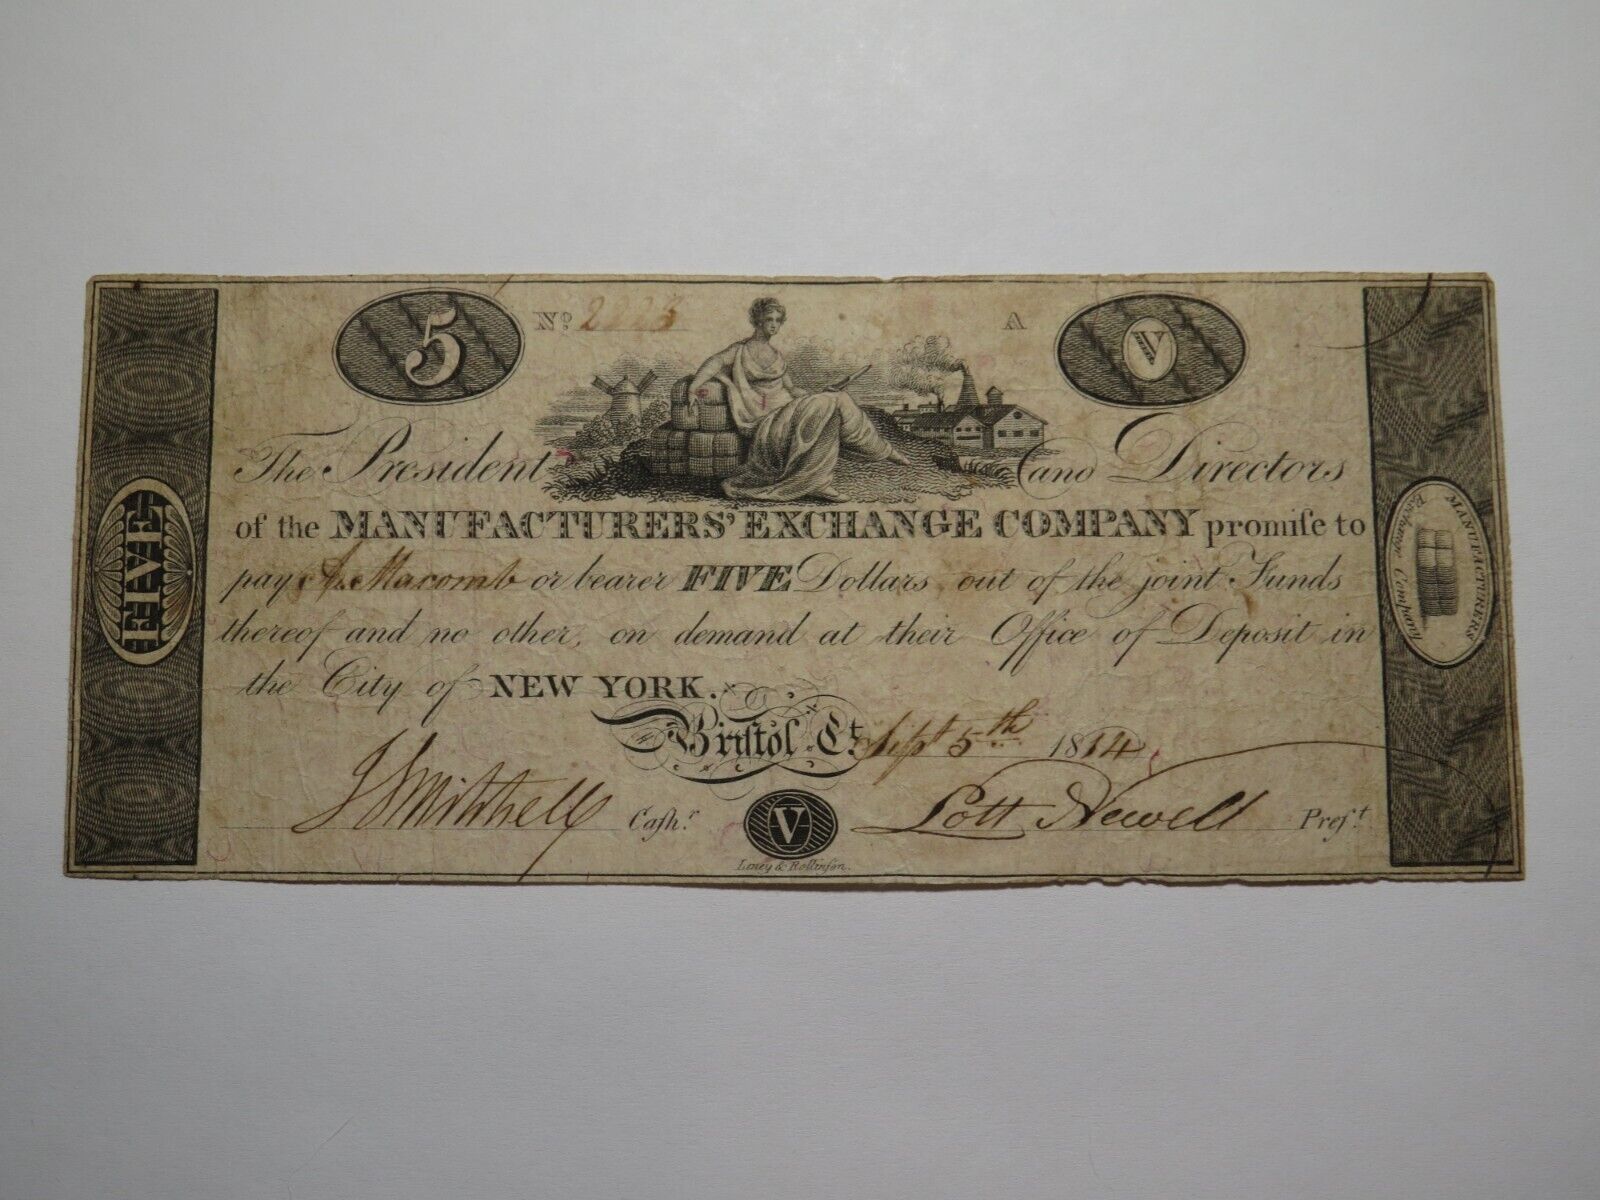 5 Nº 2223 A V
The President and Directors
of the MANUFACTURERS' EXCHANGE COMPANY promiſe to
pay Macomb or bearer FIVE Dollars out of the joint Funds
thereof and no other, on demand at their Office of Deposit in
the City of NEW YORK.
Briſtol Ct. Sept 5th 1814
J S Mitchell Caſhr. V Lott Newell Preſt.
Leney & Rollinſon.
FIVE
MANUFACTURERS
Exchange Company